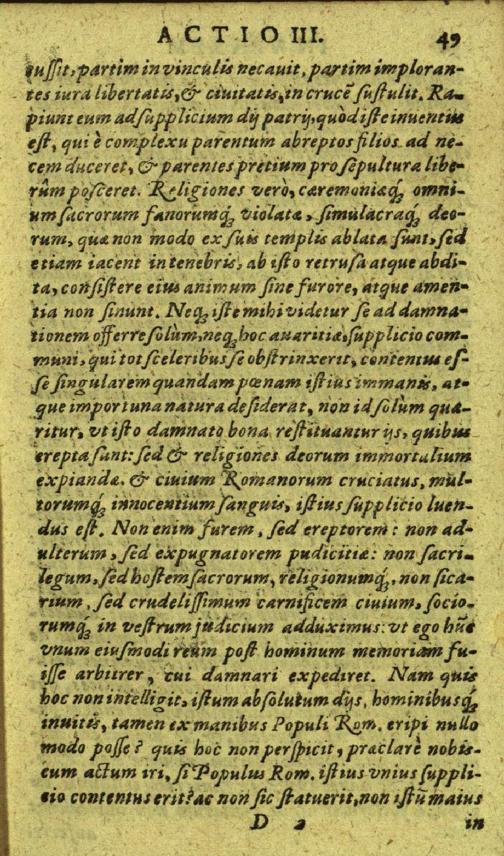 ACTIO III. 49
cussit, partim in vinculis necauit, partim imploran-
tes iura libertatis, & ciuitatis, in crucẽ sustulit. Ra-
piunt eum ad supplicium dij patrij, quòd iste inuentus
est, qui è complexu parentum abreptos filios ad ne-
cem duceret, & parentes pretium pro sepultura libe-
rûm posceret. Religiones verò, cæremoniæq́; omni-
um sacrorum fanorumq́; violatæ, simulacraq́; deo-
rum, quæ non modo ex suis templis ablata sunt, sed
etiam iacent in tenebris, ab isto retrusa atque abdi-
ta, consistere eius animum sine furore, atque amen-
tia non sinunt. Neq́; iste mihi videtur se ad damna-
tionem offerre solùm, neq́; hoc auaritiæ, supplicio com-
muni, qui tot sceleribus se obstrinxerit, contentus es-
se singularem quandam pœnam istius immanis, at-
que importuna natura desiderat, non id solùm quæ-
ritur, vt isto damnato bona restituantur ijs, quibus
erepta sunt: sed & religiones deorum immortalium
expiandæ, & ciuium Romanorum cruciatus, mul-
torumq́; innocentium sanguis, istius supplicio luen-
dus est. Non enim furem, sed ereptorem: non ad-
ulterum, sed expugnatorem pudicitiæ: non sacri-
legum, sed hostem sacrorum, religionumq́;, non sica-
rium, sed crudelissimum carnificem ciuium, socio-
rumq́; in vestrum judicium adduximus: vt ego hũc
vnum eiusmodi reum post hominum memoriam fu-
isse arbitrer, cui damnari expediret. Nam quis
hoc non intelligit, istum absolutum dijs, hominibusq́;
inuitis, tamen ex manibus Populi Rom. eripi nullo
modo posse? quis hoc non perspicit, præclarè nobis-
cum actum iri, si Populus Rom. istius vnius suppli-
cio contentus erit? ac non sic statuerit, non istũ maius
D 2 in